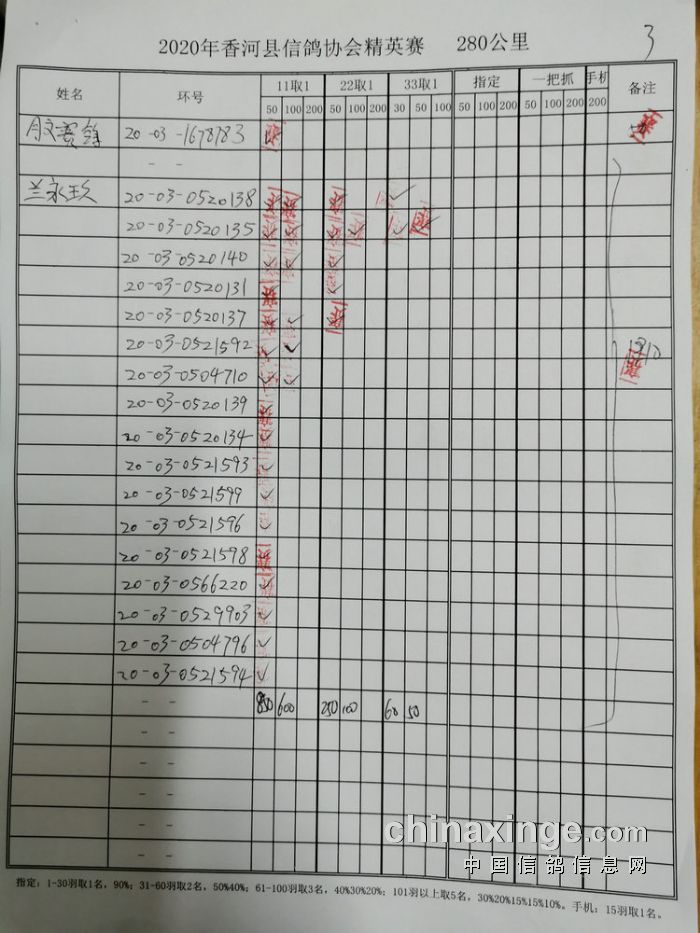 2020年香河县信鸽协会精英赛 280公里 3
姓名 环号 11取1 22取1 33取1 指定 一把抓 手机 备注
50 100 200 50 100 200 30 50 100 50 100 200 50 100 200 200
20-03-1678783
- -
兰永 20-03-0520138 ✓
20-03-0520135 ✓
20-03-0520140 ✓
20-03-0520131 ✓
20-03-0520137 ✓
20-03-0521592 ✓ ✓ 1310
20-03-0504710 ✓ ✓
20-03-0520139 ✓
20-03-0520134 ✓
20-03-0521593 ✓
20-03-0521599 ✓
20-03-0521596 ✓
20-03-0521598
20-03-0566220 ✓
20-03-0529903 ✓
20-03-0504796 ✓
20-03-0521594 ✓
- - 850 600 250 100 60 50
- -
- -
- -
- -
- -
chinaxinge.com
中国信鸽信息网
指定：1-30羽取1名，90%；31-60羽取2名，50%40%；61-100羽取3名，40%30%20%；101羽以上取5名，30%20%15%15%10%。手机：15羽取1名。